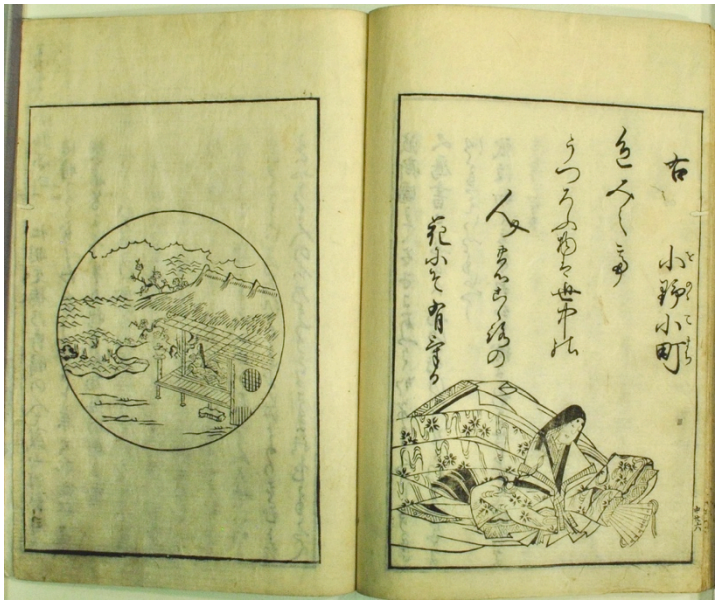 右
小野小町
色みえて
うつろふ物は世中の
人のこゝろの
花にそ有ける